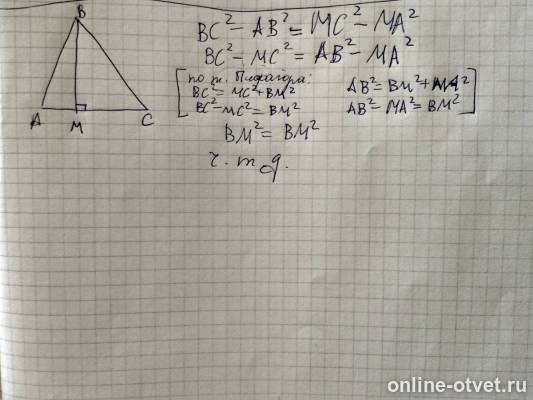 B
A
M
C
BC² - AB² = MC² - MA²
BC² - MC² = AB² - MA²
по т. Пифагора:
BC² = MC² + BM²
AB² = BM² + MA²
BC² - MC² = BM²
AB² - MA² = BM²
BM² = BM²
ч.т.д.
online-otvet.ru